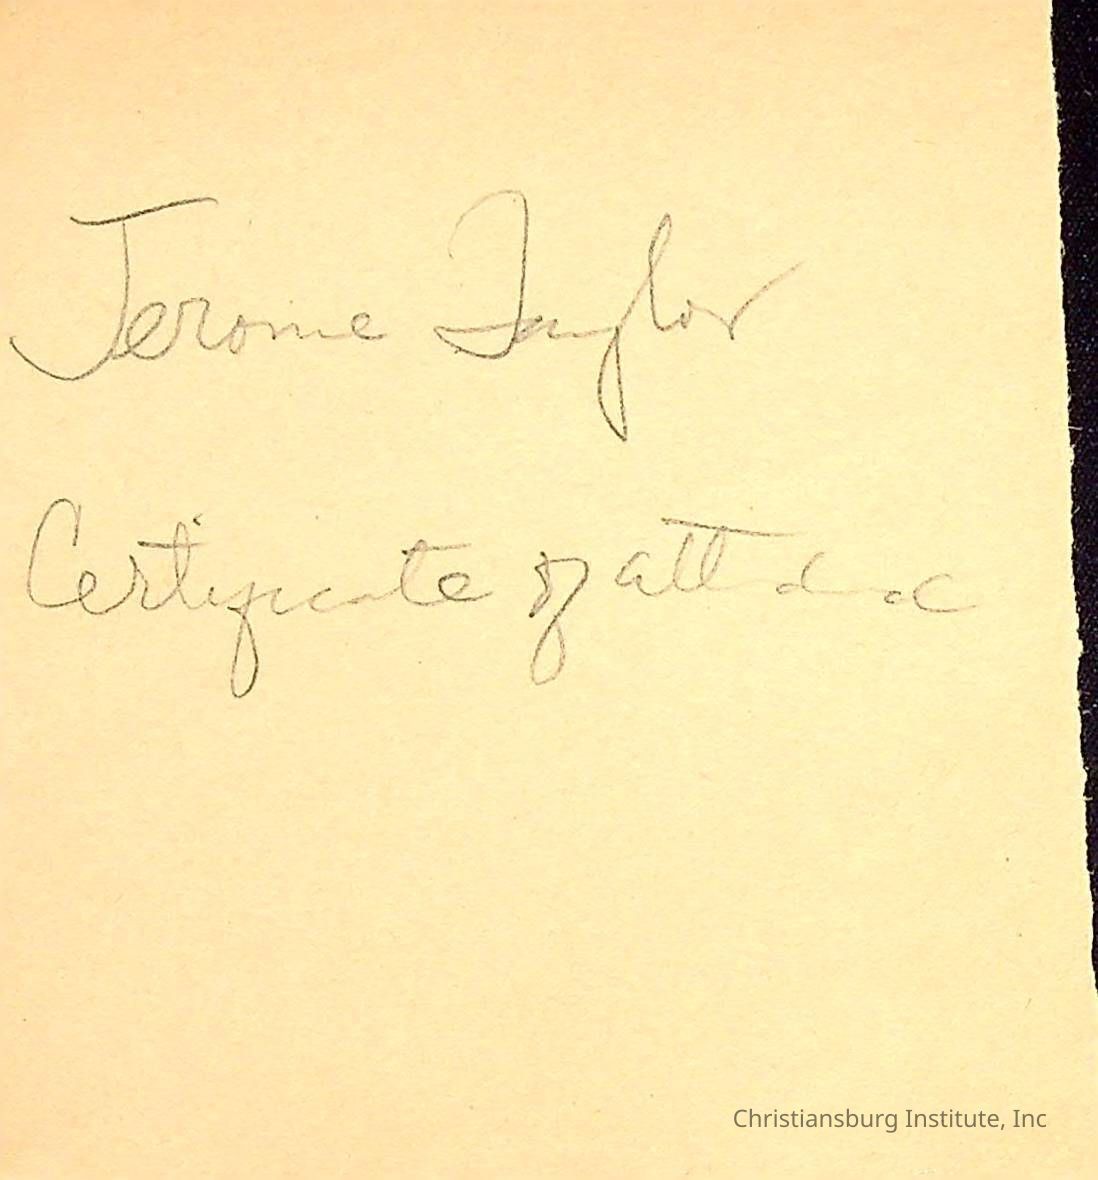 Jerome Taylor
Certificate of attendance
Christiansburg Institute, Inc